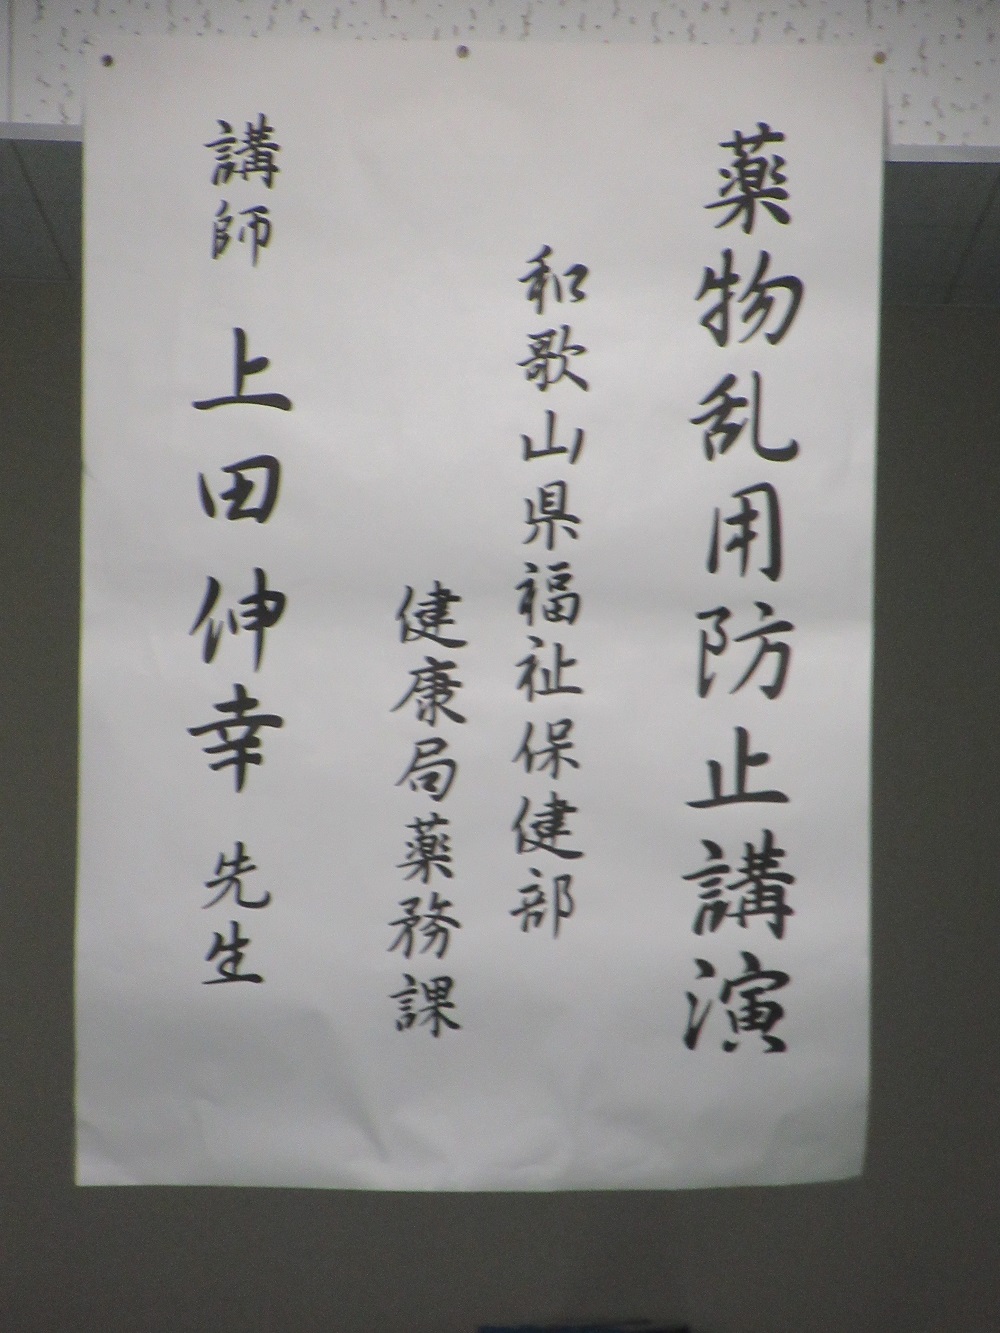 薬物乱用防止講演
和歌山県福祉保健部
健康局薬務課
講師 上田伸幸 先生